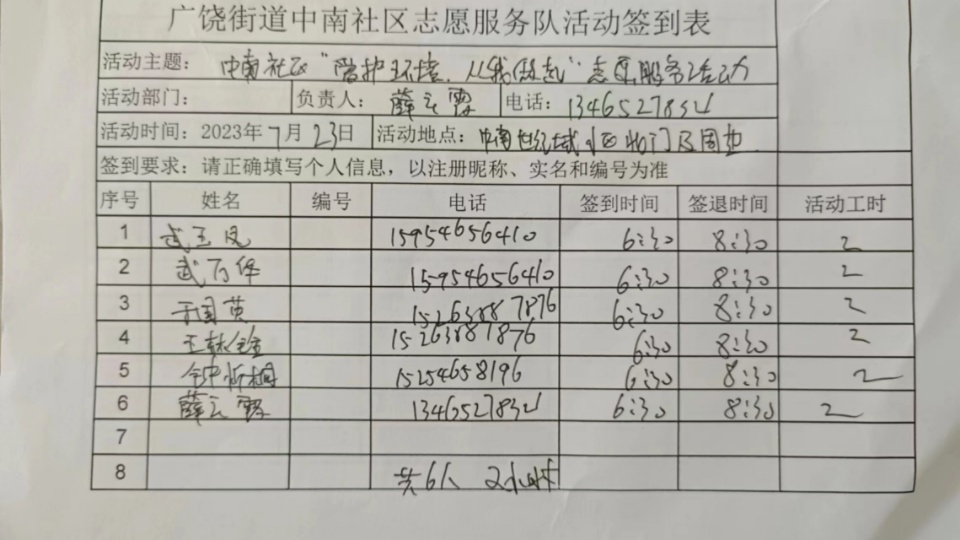 广饶街道中南社区志愿服务队活动签到表
活动主题： 中南社区“陪护环境，从我做起”志愿服务活动
活动部门： 负责人： 薛云霞 电话：
活动时间：2023年7月23日 活动地点：中南世纪城小区北门及周边
签到要求：请正确填写个人信息，以注册昵称、实名和编号为准
序号 姓名 编号 电话 签到时间 签退时间 活动工时
1 武玉凤 15954656410 6:30 8:30 2
2 武万华 15954656410 6:30 8:30 2
3 于国英 15263887876 6:30 8:30 2
4 15263887876 6:30 8:30 2
5 钟忻桐 15254658196 6:30 8:30 2
6 薛云霞 6:30 8:30 2
7
8 共6人 2小时